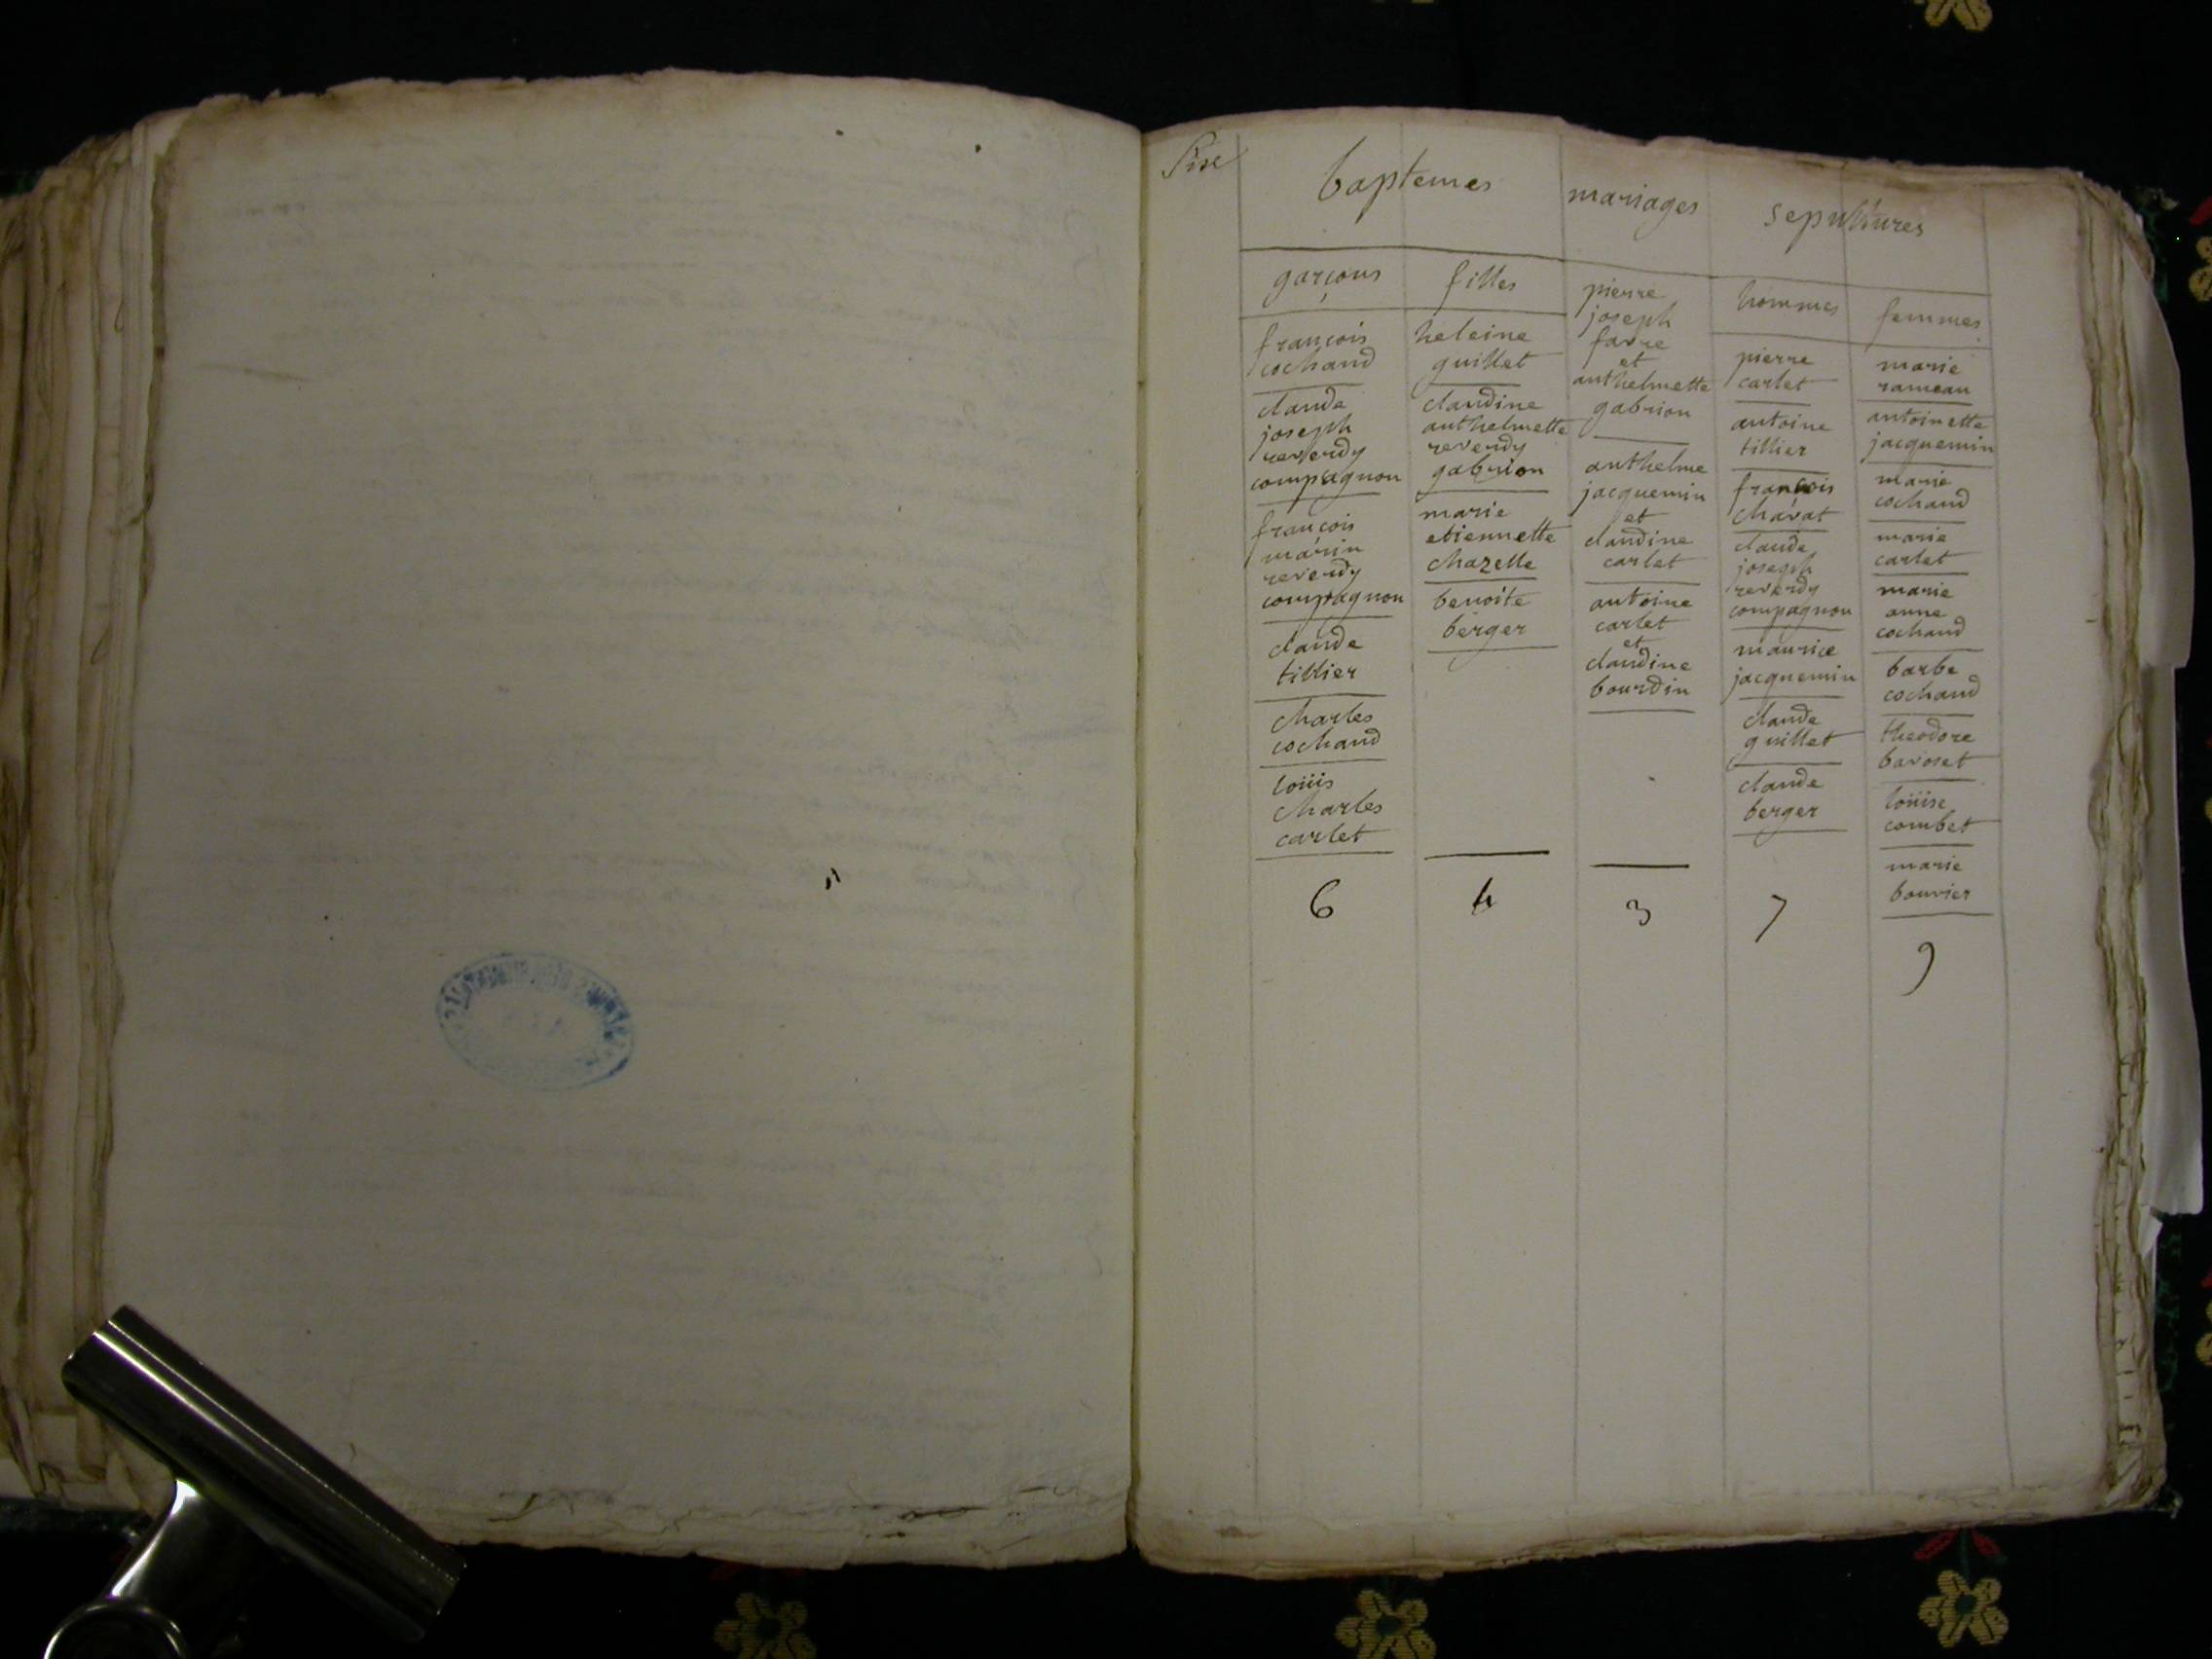 baptemes
mariages
sepultures
garçons
françois
cochand
claude
joseph
reverdy
compagnon
françois
marin
reverdy
compagnon
claude
tillier
charles
cochand
loüis
charles
carlet
6
filles
heleine
guillet
claudine
anthelmette
reverdy
gabrion
marie
etiennette
chazelle
benoite
berger
4
pierre
joseph
favre
et
anthelmette
gabrion
anthelme
jacquemin
et
claudine
carlet
antoine
carlet
et
claudine
bourdin
3
hommes
pierre
carlet
antoine
tillier
françois
charat
claude
joseph
reverdy
compagnon
maurice
jacquemin
claude
guillet
claude
berger
7
femmes
marie
rameau
antoinette
jacquemin
marie
cochand
marie
carlet
marie
anne
cochand
barbe
cochand
theodore
baroset
loüise
combet
marie
bouvier
9